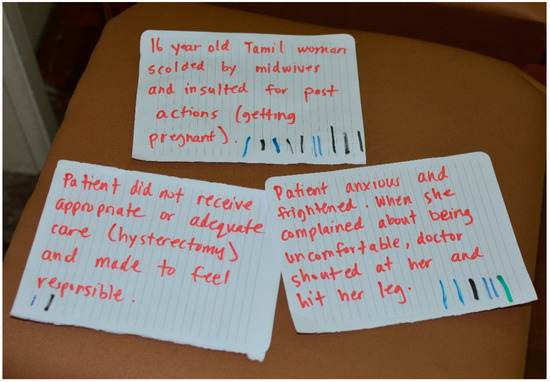 16 year old Tamil woman
scolded by midwives
and insulted for post
actions (getting
pregnant).
Patient did not receive
appropriate or adequate
care (hysterectomy)
and made to feel
responsible.
Patient anxious and
frightened. When she
complained about being
uncomfortable, doctor
shouted at her and
hit her leg.